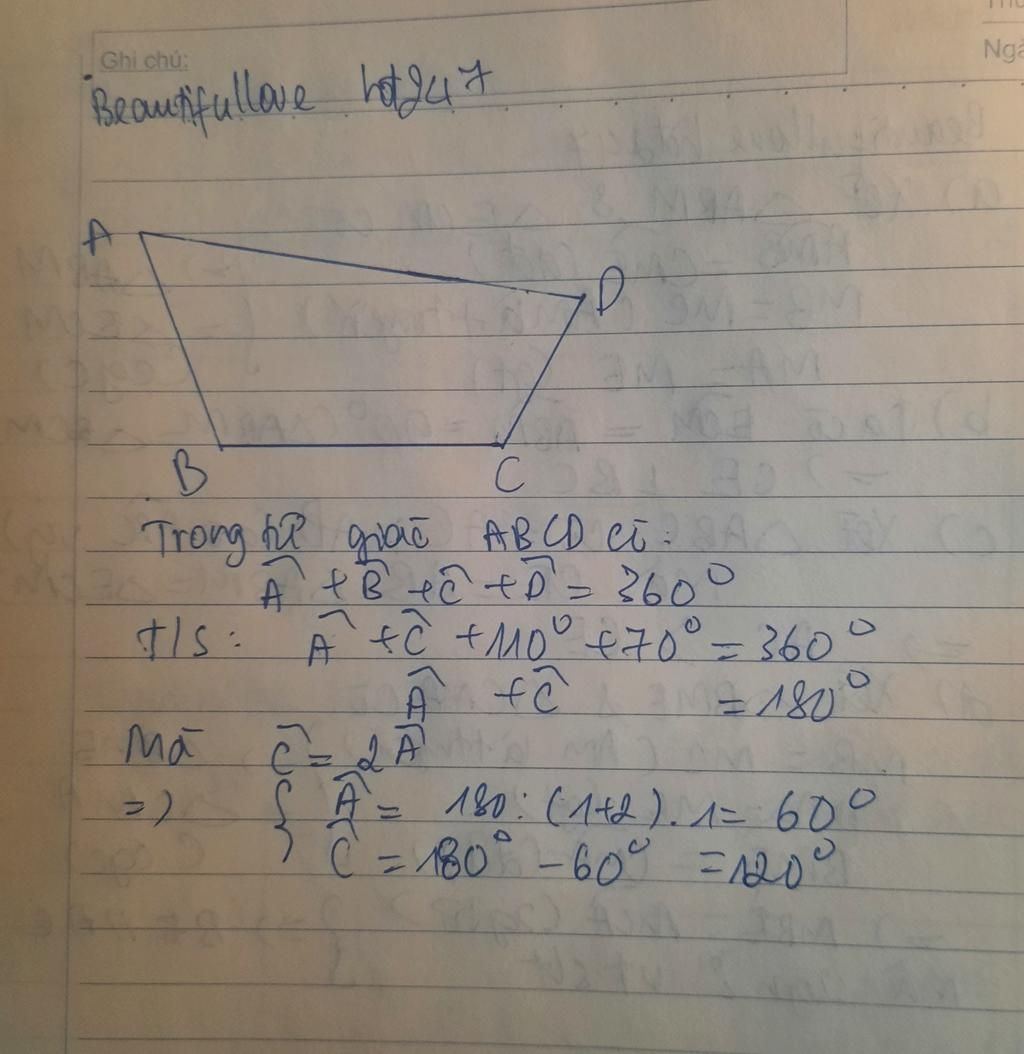 Ghi chú:
Beautifullove hot247
Ngà
A
D
B
C
Trong tứ giác ABCD có:
Â + B̂ + Ĉ + D̂ = 360°
T/S: Â + Ĉ + 110° + 70° = 360°
Â + Ĉ = 180°
Mà Ĉ = 2Â
=> { Â = 180 : (1+2) . 1 = 60°
Ĉ = 180° - 60° = 120°